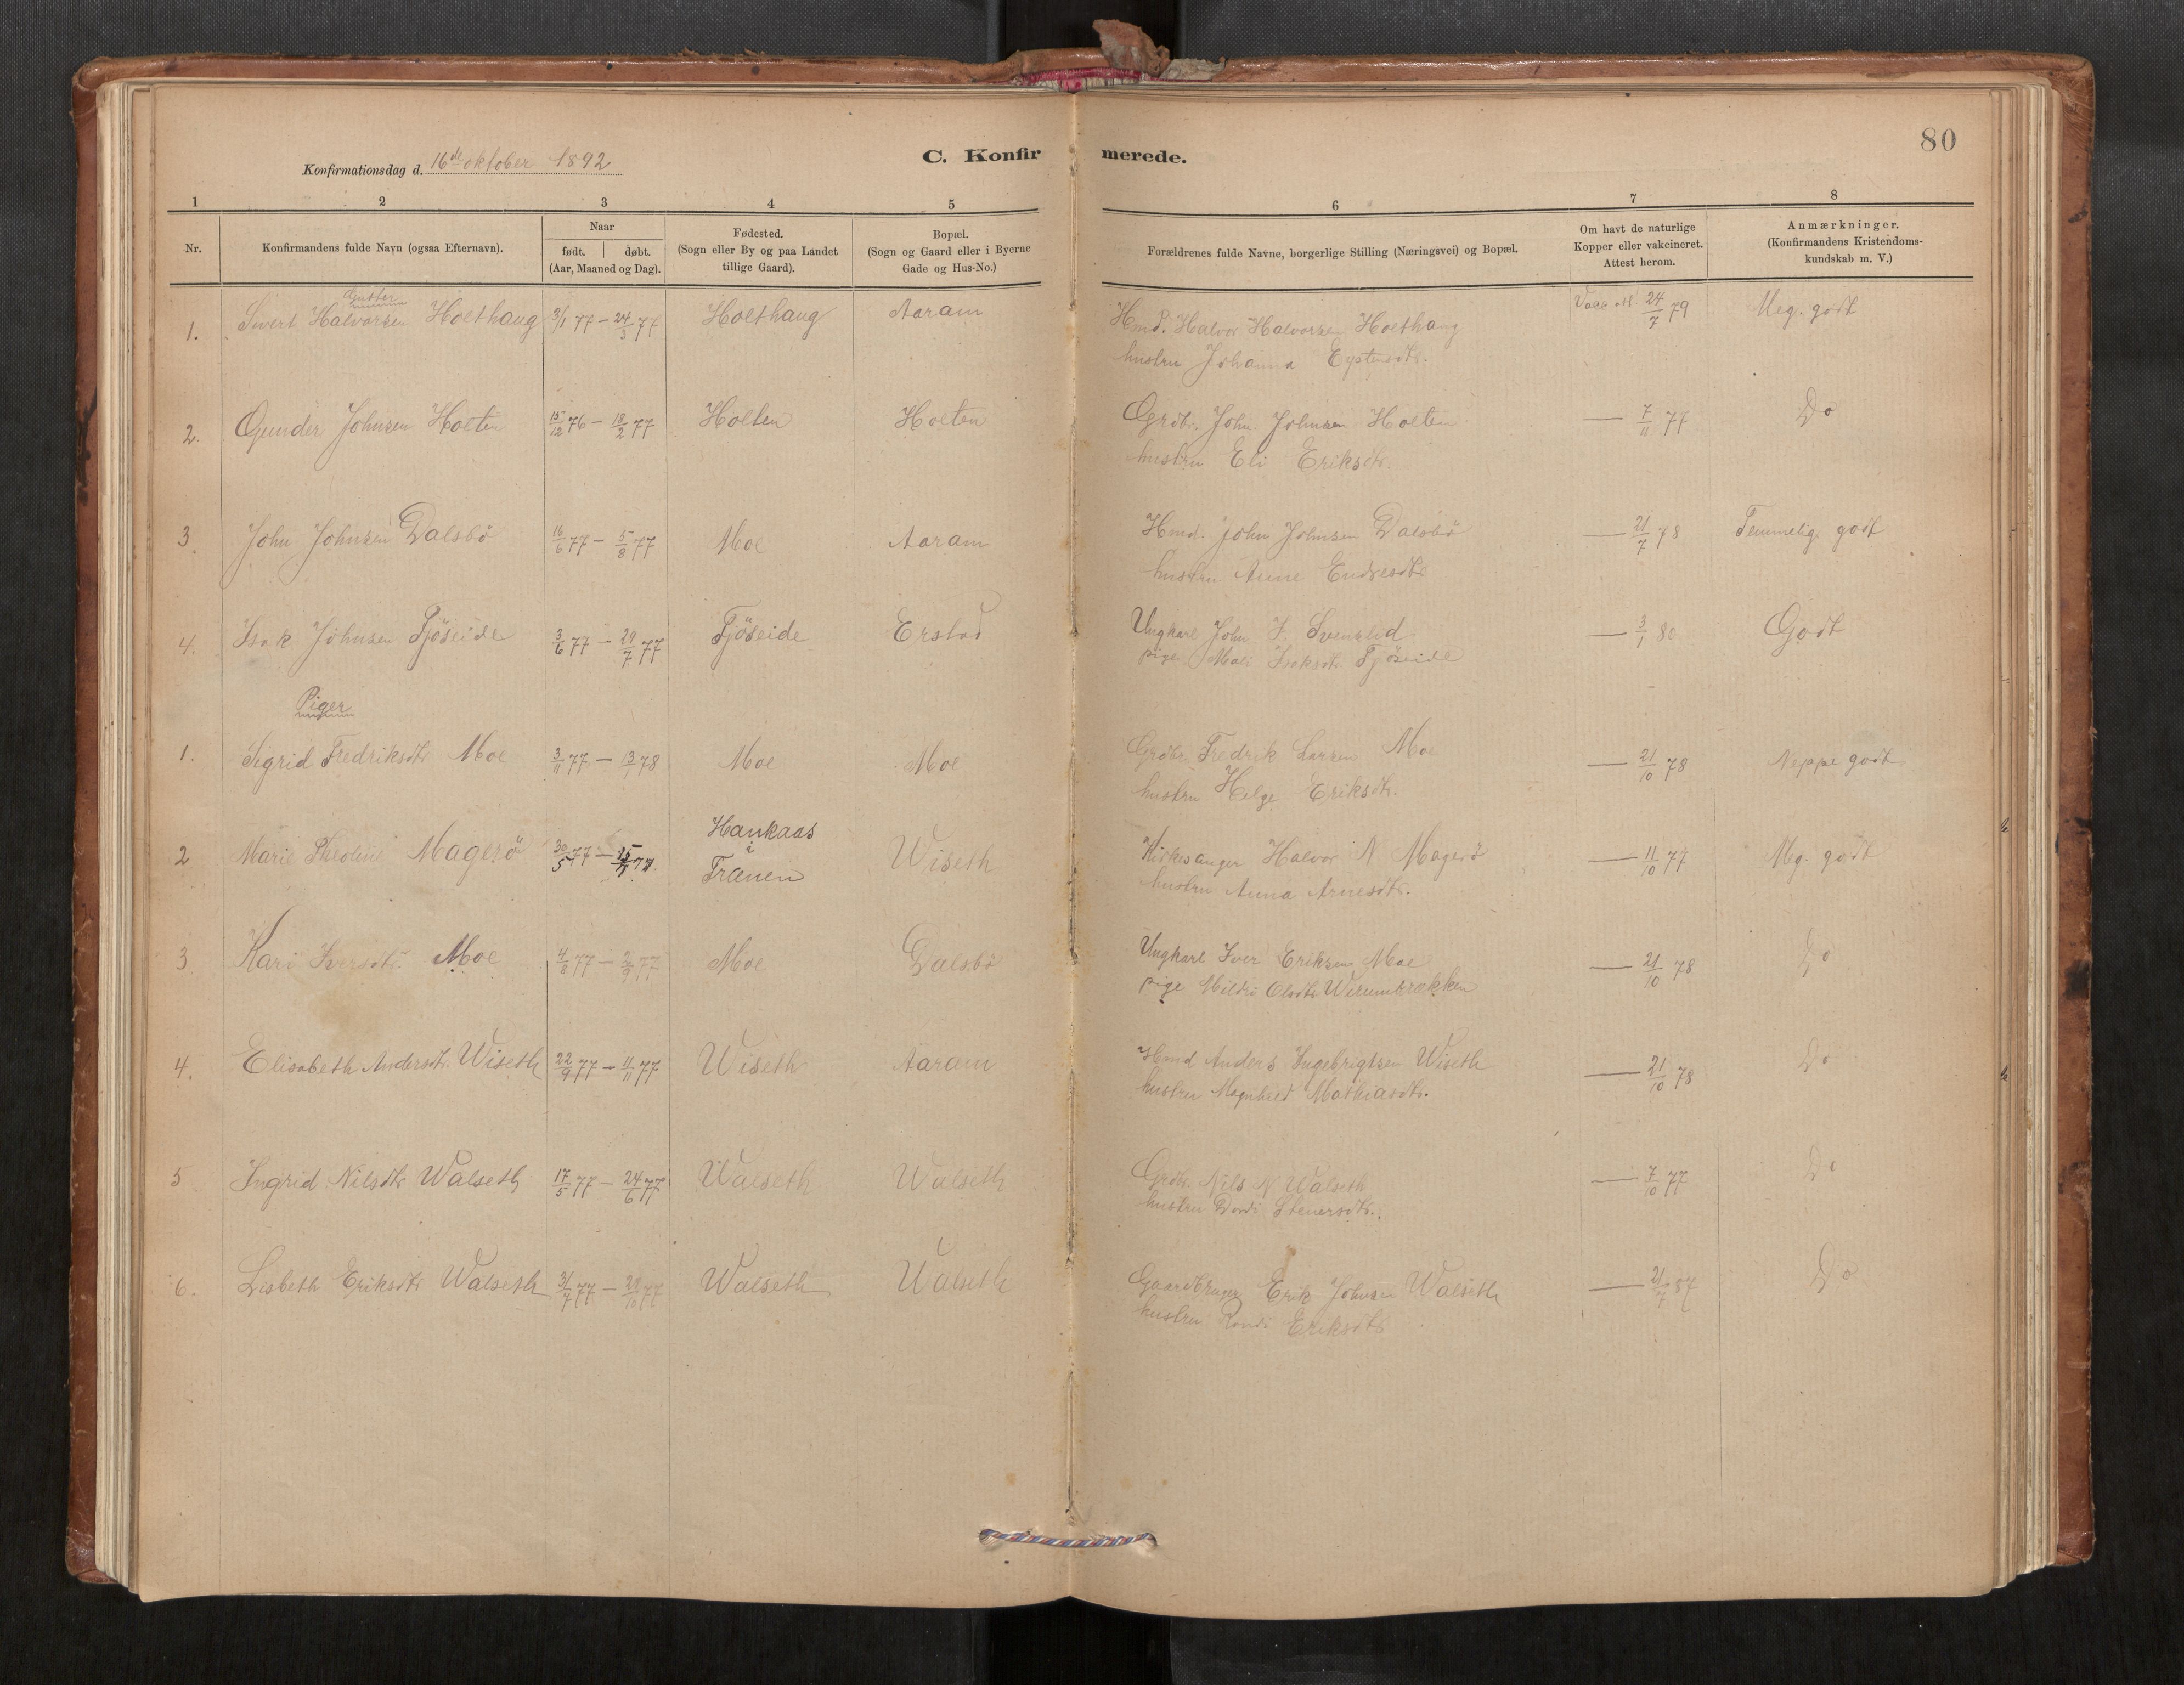 80
Konfirmationsdag d. 16de oktober 1892
C. Konfirmerede.
1 2 3 4 5 6 7 8
Nr.
Konfirmandens fulde Navn (ogsaa Efternavn).
Naar
født. døbt.
(Aar, Maaned og Dag).
Fødested.
(Sogn eller By og paa Landet
tillige Gaard).
Bopæl.
(Sogn og Gaard eller i Byerne
Gade og Hus-No.)
Forældrenes fulde Navne, borgerlige Stilling (Næringsvei) og Bopæl.
Om havt de naturlige
Kopper eller vakcineret.
Attest herom.
Anmærkninger.
(Konfirmandens Kristendoms-
kundskab m. V.)
Gutter
1. Sivert Halvorsen Holthaug 3/1 77 – 24/3 77 Holthaug Aaram Hmd. Halvor Halvorsen Holthaug 24/7 79 Meg. godt
hustru Johanna
2. Gunder Johnsen Holten 15/12 76 – 18/2 77 Holten Holten Grdbr. John Johnsen Holten — 7/11 77 Do
hustru Eli Eriksdtr.
3. John Johnsen Dalsbö 16/6 77 – 5/8 77 Moe Aaram Hmd. John Johnsen Dalsbö — 21/7 78 Temmelig godt
hustru Anne Endresdtr
4. Isak Johnsen Tjöseide 3/6 77 – 29/7 77 Tjöseide Erstad Ungkarl John J. — 3/1 80 Godt
pige Mali Isaksdtr Tjöseide
Piger
1. Sigrid Fredriksdtr Moe 3/11 77 – 13/1 78 Moe Moe Grdbr. Fredrik Larsen Moe — 21/10 78 Neppe godt
hustru Helge Eriksdtr.
2 Marie Theoline Magerö 30/5 77 – Haukaas i Trænen Wiseth Kirkesanger Halvor N Magerö — 11/10 77 Mg. godt
hustru Anna Arnesdtr.
3 Kari Iversdtr Moe 4/8 77 – 2/9 77 Moe Dalsbö Ungkarl Iver Eriksen Moe — 21/10 78 Do
pige Mildri Olsdtr Wirumbrækken
4. Elisabeth Andersdtr. Wiseth 22/9 77 – 11/11 77 Wiseth Aaram Hmd Anders Ingebrigtsen Wiseth — 21/10 78 Do
hustru Magnhild Mathiasdtr.
5 Ingrid Nilsdtr Walseth 17/5 77 – 24/6 77 Walseth Walseth Grdbr. Nils N Walseth — 7/10 77 Do
hustru Dordi Stenersdtr.
6. Lisbeth Eriksdtr Walseth 31/7 77 – Walseth Walseth Gaardbruger Erik Johnsen Walseth — 21/7 87 Do
hustru Randi Eriksdtr